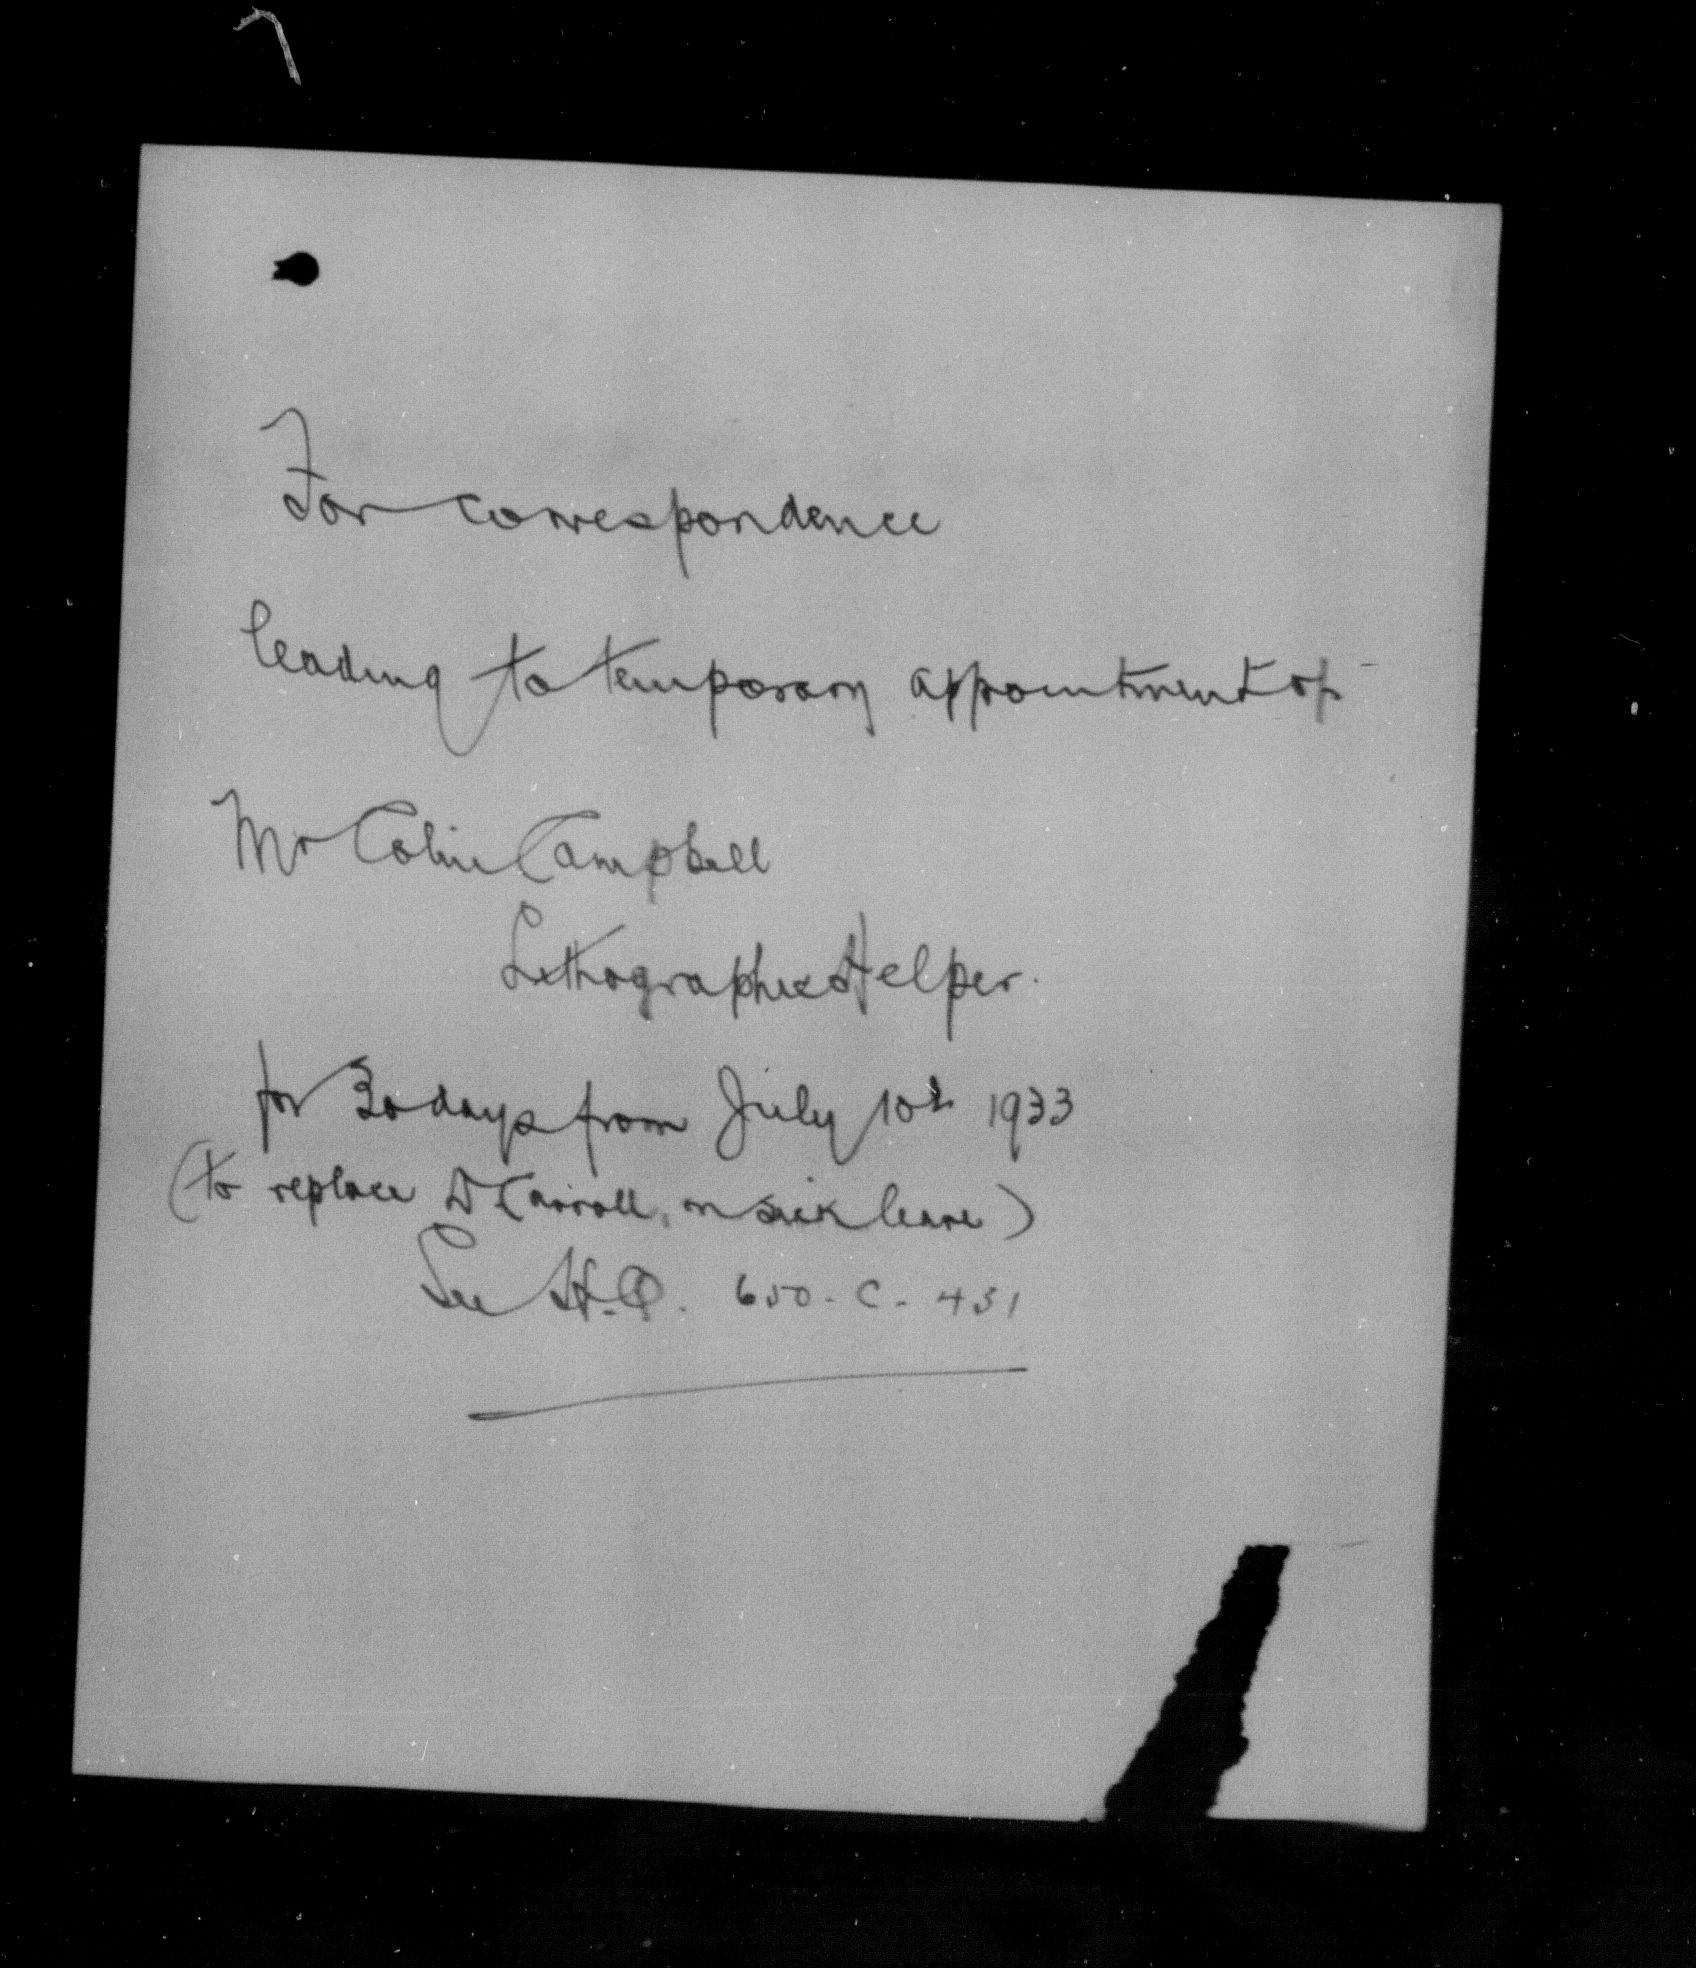 For correspondence
leading to temporary appointment of
Mr Colin Campbell
Lithographic Helper.
for 30 days from July 10th 1933
(to replace D Carroll, on sick leave)
See H.Q. 650-C-431